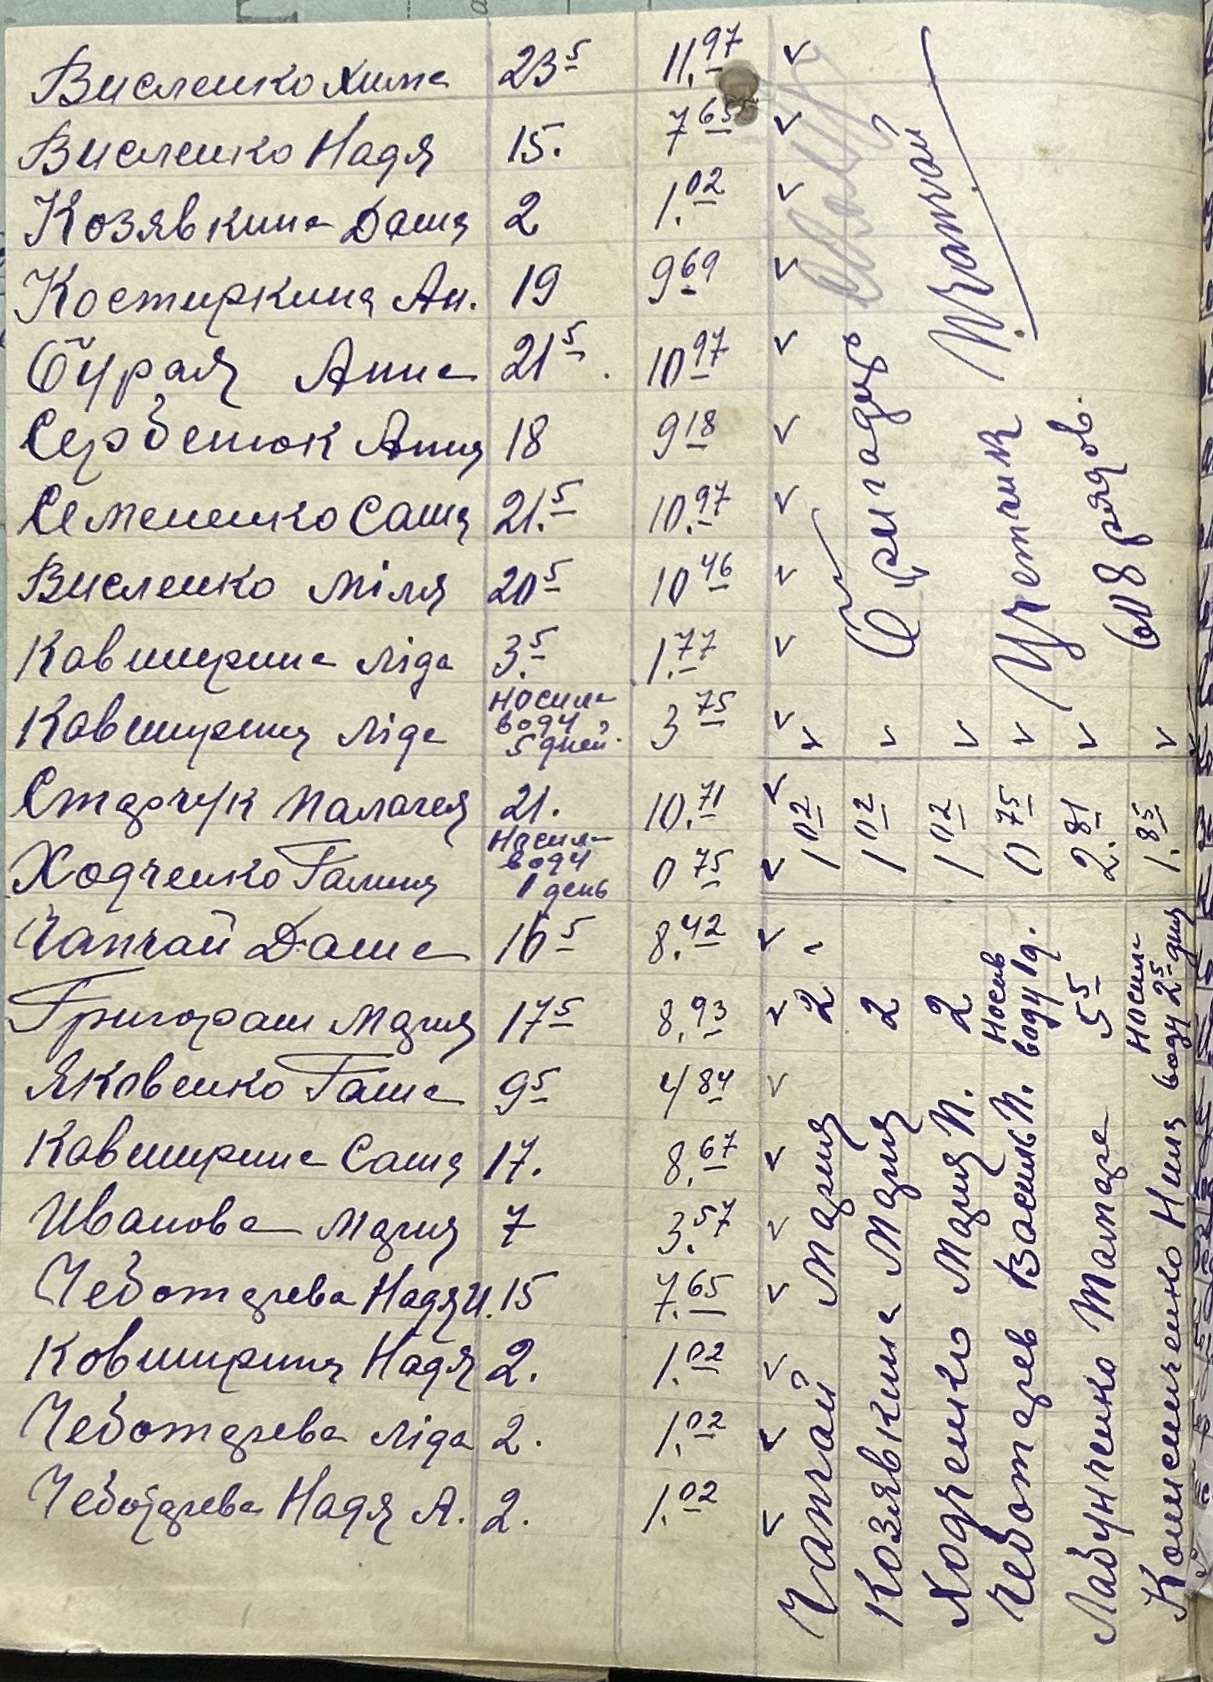 Висленко Хима 23⁵ 11.97 v
Висленко Надя 15. 7 65 v
Козявкина Даша 2 1.02 v
Костиркина Ан. 19 9 69 v
Бурая Анна 21⁵. 10 97 v
Сербенюк Анна 18 9 18 v
Семененко Саша 21.⁵ 10.97 v
Висленко Міля 20⁵ 10 46 v
Кавширина Ліда 3.⁵ 1.77 v
Кавширина Ліда носила воду 5 дней. 3 75 v
Старчук Палагея 21. 10.71 v
Ходченко Галина Насила воду 1 день 0 75 v
Чапчай Даша 16⁵ 8.42 v
Григораш Мария 17⁵ 8.93 v
Яковенко Гаша 9⁵ 4 84 v
Кавширина Саша 17. 8.67 v
Иванова Мария 7 3.57 v
Чеботарева Надя И. 15 7.65 v
Ковширина Надя 2. 1.02 v
Чеботарева Ліда 2. 1.02 v
Чеботарева Надя А. 2. 1.02 v
Чапчай Мария 2 1 02 v
Козявкина Мария 2 1 02 v
Ходченко Мария П. 2 1 02 v
Чеботарев Василь П. Носив воду 1 д. 0 75 v
Лабунченко Татара 5⁵ 2.81 v
Конисниченко Нина носила воду 2⁵ дня 1.85 v
Бригадир
Учетчик Чапчай
608 рядов.